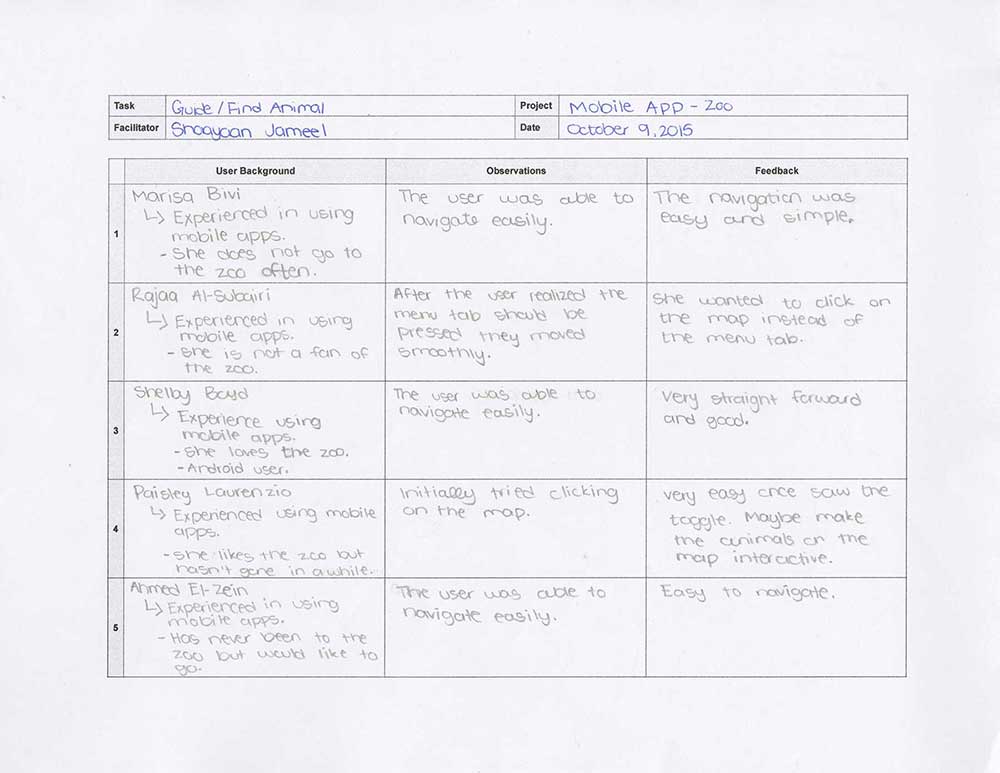 Task Guide/Find Animal Project Mobile App - Zoo
Facilitator Jameel Date October 9, 2015
User Background Observations Feedback
1
Marisa Bivi
↳ Experienced in using
mobile apps.
- She does not go to
the zoo often.
The user was able to
navigate easily.
The navigation was
easy and simple.
2
Rajaa Al-Subairi
↳ Experienced in using
mobile apps.
- She is not a fan of
the zoo.
After the user realized the
menu tab should be
pressed they moved
smoothly.
She wanted to click on
the map instead of
the menu tab.
3
Shelby Boyd
↳ Experience using
mobile apps.
- She loves the zoo.
- Android user.
The user was able to
navigate easily.
Very straight forward
and good.
4
Paisley Laurenzio
↳ Experienced using mobile
apps.
- She likes the zoo but
hasn't gone in awhile.
Initially tried clicking
on the map.
Very easy once saw the
toggle. Maybe make
the animals on the
map interactive.
5
Ahmed El-Zein
↳ Experienced in using
mobile apps.
- Has never been to the
zoo but would like to
go.
The user was able to
navigate easily.
Easy to navigate.